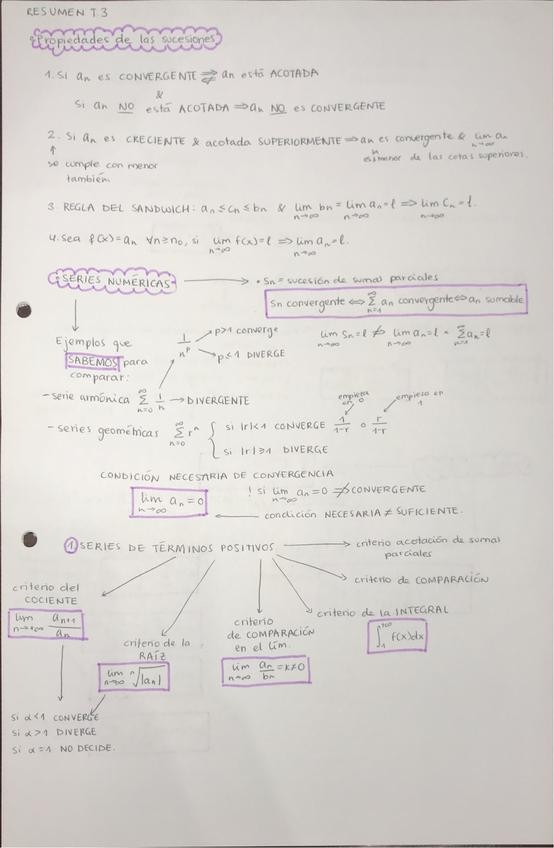 RESUMEN T.3
Propiedades de las sucesiones
1. Si an es CONVERGENTE ⇏ an está ACOTADA
&
Si an NO está ACOTADA ⇒ an NO es CONVERGENTE
2. Si an es CRECIENTE & acotada SUPERIORMENTE ⇒ an es convergente & lim an
n→∞
es menor de las cotas superiores.
↑
se cumple con menor
también.
3. REGLA DEL SANDWICH: an ≤ cn ≤ bn & lim bn = lim an = l ⇒ lim Cn = l.
n→∞ n→∞ n→∞
4. Sea f(x) = an ∀n ≥ n₀, si lim f(x) = l ⇒ lim an = l.
n→∞
SERIES NUMÉRICAS → • Sn = sucesión de sumas parciales
Sn convergente ⟺ ∞ Σ n=1 an convergente ⟺ an sumable
lim Sn = l ⇏ lim an = l
n→∞ n→∞
∞ Σ n=1 an = l
Ejemplos que
SABEMOS para
comparar:
1/n^p
p>1 converge
p≤1 DIVERGE
- serie armónica ∞ Σ n=0 1/n → DIVERGENTE
- series geométricas ∞ Σ n=0 r^n { si |r|<1 CONVERGE 1/1-r o r/1-r
empieza en 0
empieza en 1
si |r|≥1 DIVERGE
CONDICIÓN NECESARIA DE CONVERGENCIA
lim an = 0
n→∞
! si lim an = 0 ⇏ CONVERGENTE
n→∞
← condición NECESARIA ≠ SUFICIENTE.
1 SERIES DE TÉRMINOS POSITIVOS → criterio acotación de sumas
parciales
criterio de COMPARACIÓN
criterio de la INTEGRAL
∫ 1 +∞ f(x)dx
criterio del
COCIENTE
lim an+1/an
n→+∞
criterio de la
RAÍZ
lim ⁿ√|an|
n→∞
criterio
de COMPARACIÓN
en el lím.
lim an/bn = k≠0
n→∞
Si α<1 CONVERGE
Si α>1 DIVERGE
Si α=1 NO DECIDE.